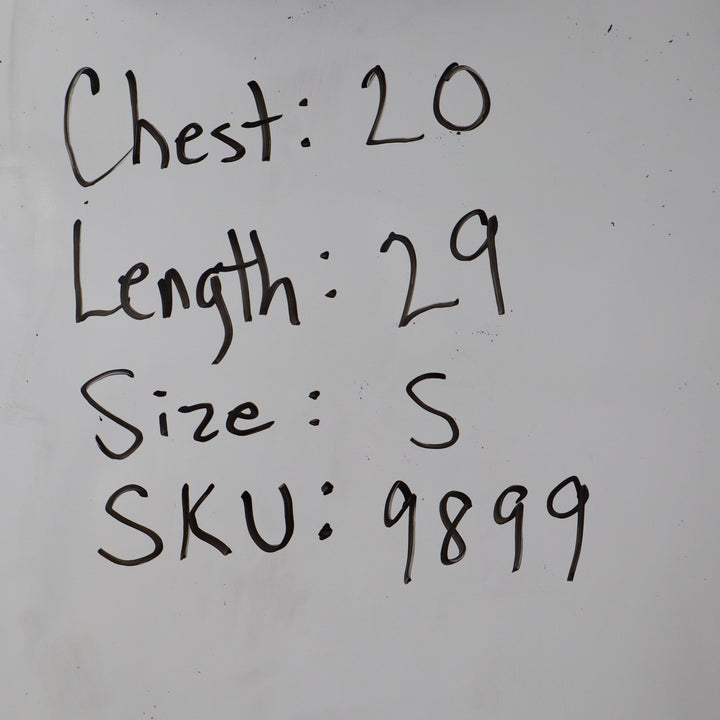 Chest: 20
Length: 29
Size: S
SKU: 9899